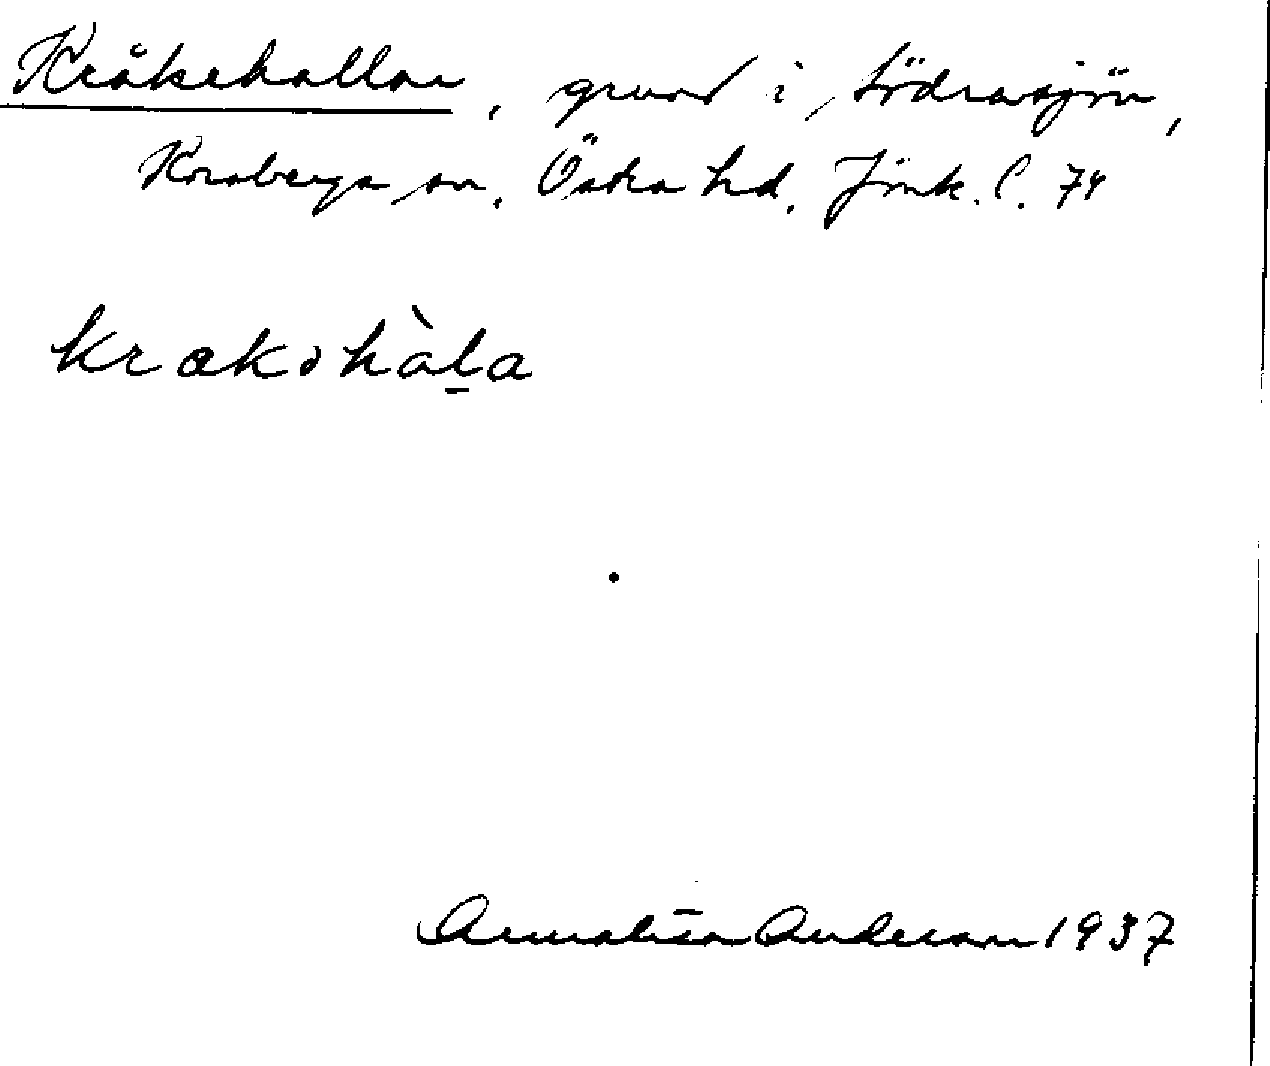 Kråkehallar, grund i Södrasjön,
Korsberga sn, Östra hd, Jönk. l. 74
krakəhàl̠a
Annalisa Anderson 1937